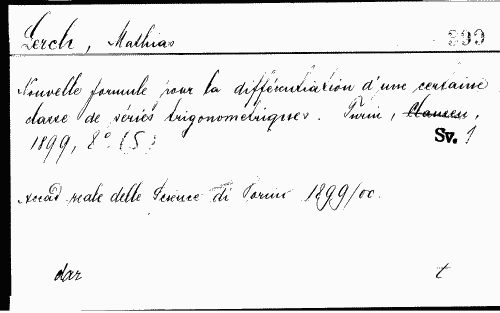 Lerch, Mathias 899
Nouvelle formule pour la différentiation d'une certaine
classe de séries trigonometriques. Turin, Clausen,
1899, 8° (5)
Sv. 1
Accad reale delle Scienze di Torino 1899/00.
dar t